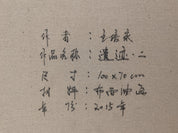 作者：王培永
作品名称：遗迹·二
尺寸：100x70cm
材料：布面油画
年份：2015年